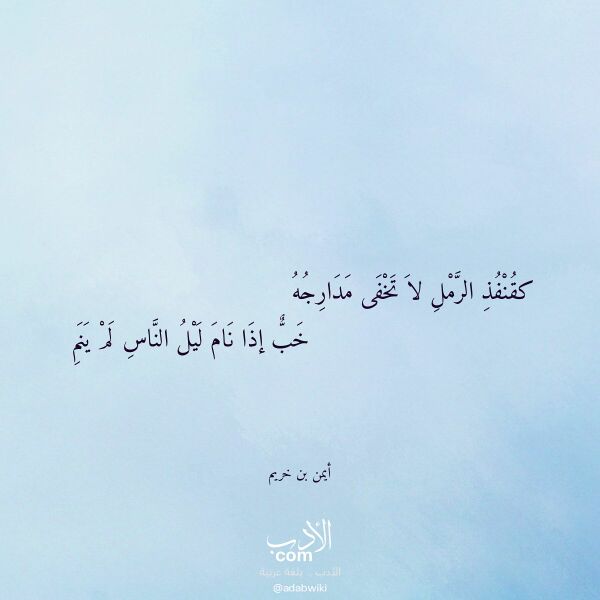 كقُنْفُذِ الرَّمْلِ لاَ تَخْفَى مَدَارِجُهُ
خَبٌّ إذَا نَامَ لَيْلُ النَّاسِ لَمْ يَنَمِ
أيمن بن خريم
الأدب
com
الأدب .. بلغة عربية
@adabwiki